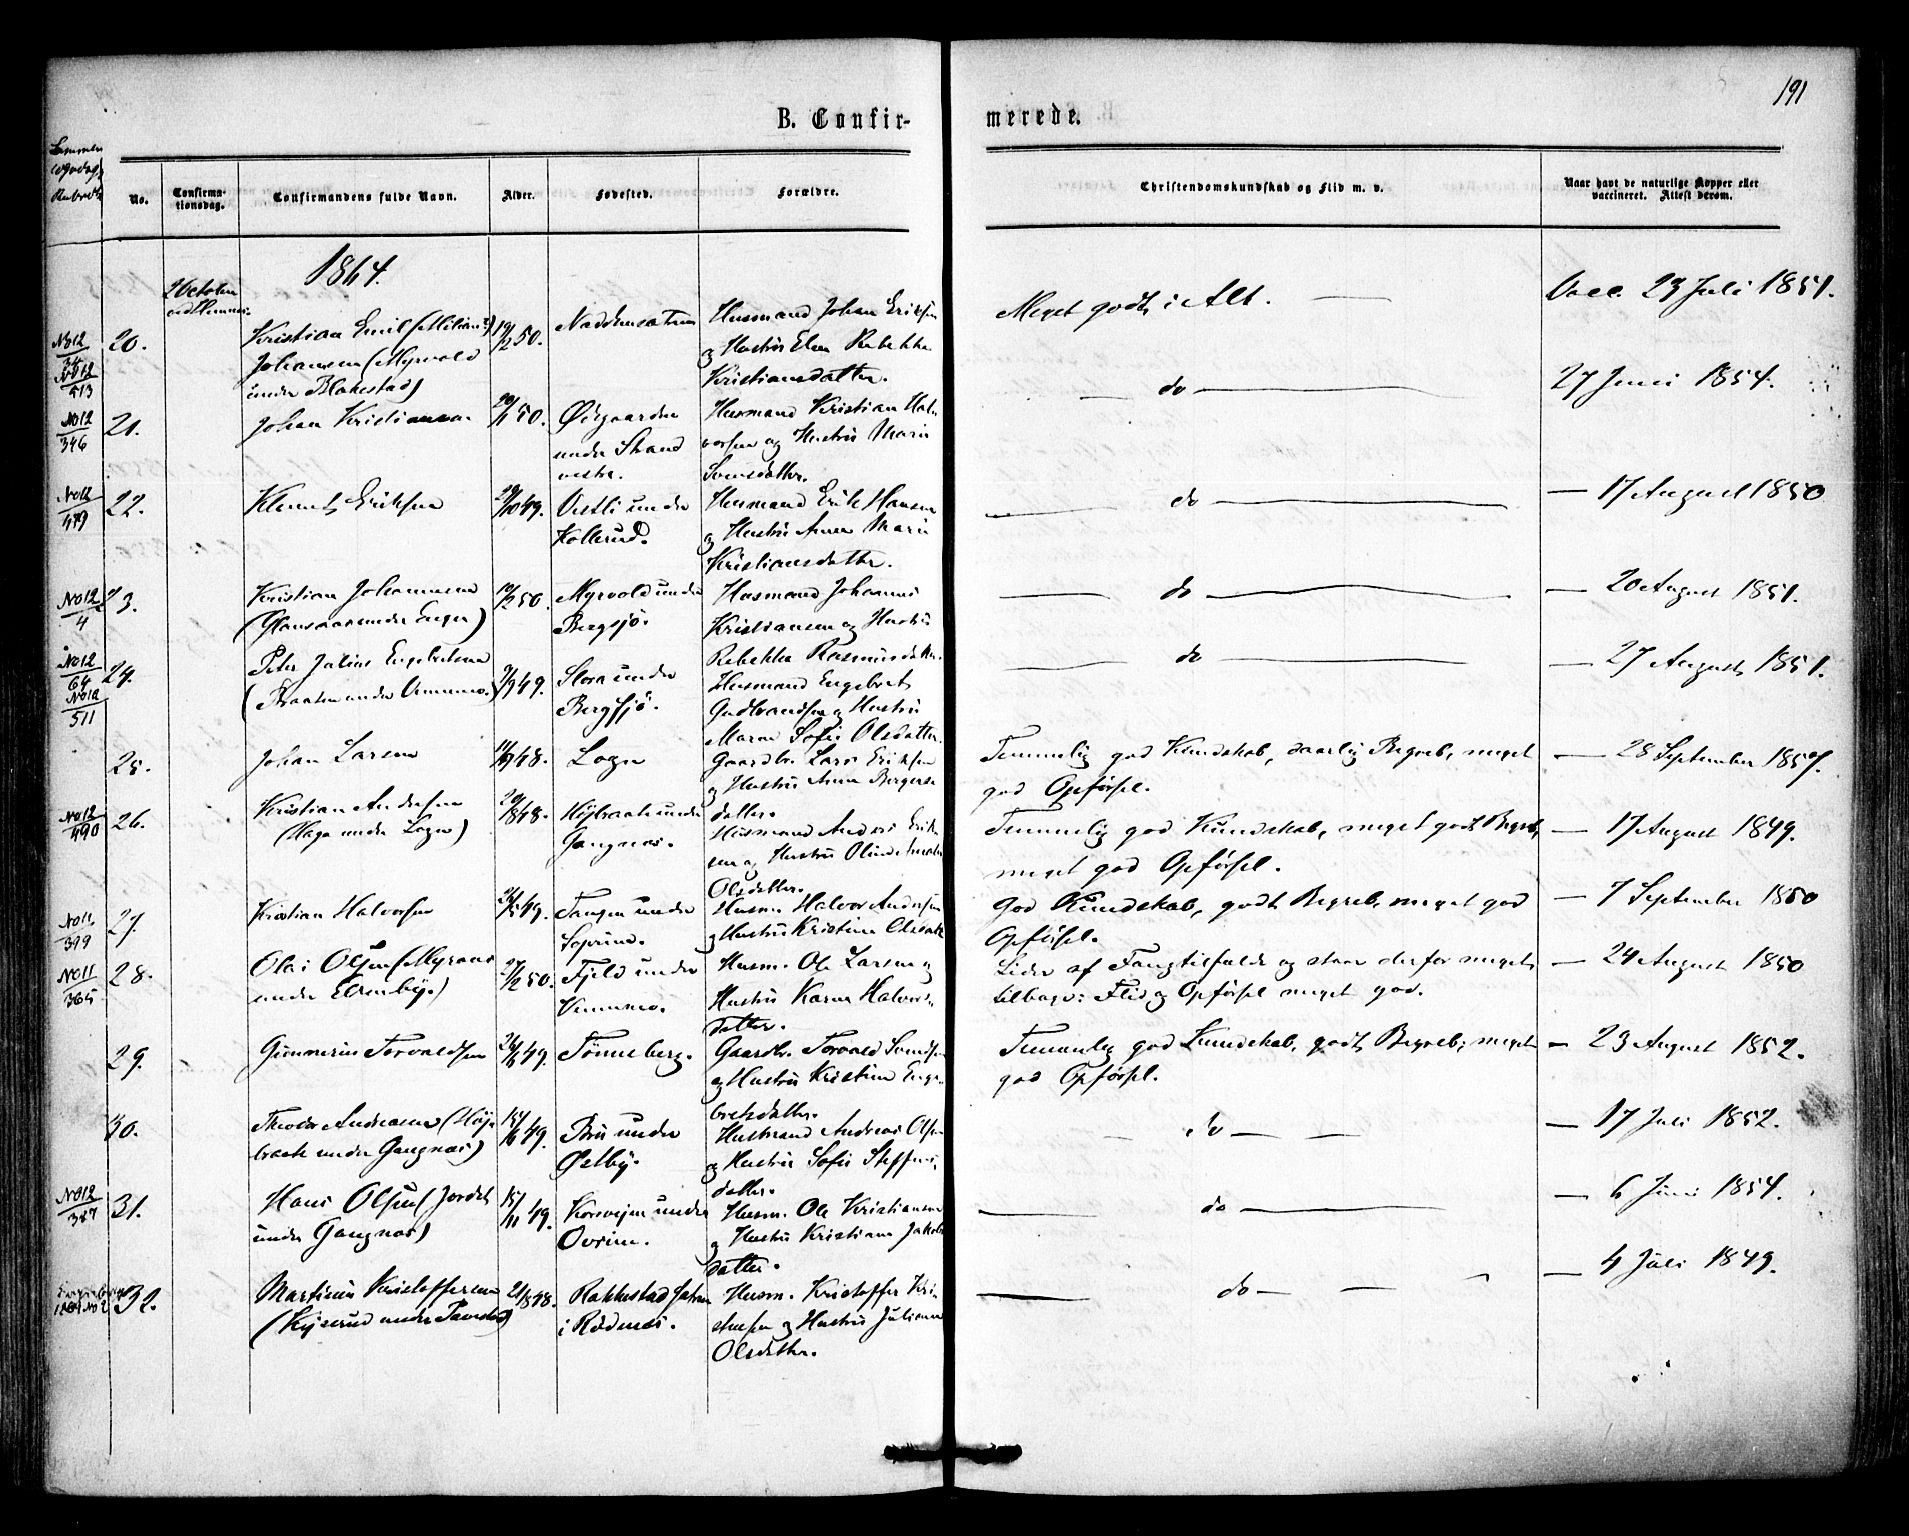 191
B. Confir-
merede.
No.
Confirma-
tionsdag.
Confirmandens fulde Navn.
Alder.
Fødested.
Forældre.
Christendomskundskab og Flid m. v.
Naar havt de naturlige Kopper eller
vaccineret. Attest derom.
1864.
20.
Kristian Emil
Johansen (Myrvold
under Blakestad)
50.
Husmand Johan Eriksen
og Hustru Elen Rebekka
Kristiansdatter.
Meget godt i Alt.
Vacc. 23 Juli 1851.
21.
Johan Kristiansen
50.
Ødegaarden
under Strand
vestre.
Husmand Kristian Hal-
vorsen og Hustru Marie
Svensdatter.
do
27 Juni 1854.
22.
Klemet Eriksen
49.
Vestli under
Kollerud.
Husmand Erik Hansen
og Hustru Anne Marie
Kristiansdatter.
do
— 17 August 1850
23.
Kristian Johannesen
50.
Myrvold under
Bergsjø.
Husmand Johannes
Kristiansen og Hustru
Rebekka Rasmusdatter.
do
— 20 August 1851.
24.
Peter Julius Engebretsen
49.
Slora under
Bergsjø.
Husmand Engebret
Gudbrandsen og Hustru
Maren Sofie Olsdatter.
do
— 27 August 1851.
25.
Johan Larsen
48.
Gaardbr. Lars Eriksen
og Hustru Anne Bergers-
datter.
Temmelig god Kundskab, daarlig Begreb, meget
god Opførsel.
— 28 September
26.
Kristian Andersen
48.
under
Gangnæs.
Husmand Anders Erik-
sen og Hustru
Olsdatter.
Temmelig god Kundskab, meget godt Begreb,
meget god Opførsel.
— 17 August 1849.
27.
Kristian Halvorsen
49.
Tangen under
Husm. Halvor Andersen
og Hustru Kristine
God Kundskab, godt Begreb, meget god
Opførsel.
— 7 September 1850
28.
50.
Fjeld under
Husm. Ole Larsen og
Hustru Karen Halvors-
datter.
Lider af Tungtilfælde og staar derfor meget
tilbage; Flid og Opførsel meget god.
— 24 August 1850
29.
Gunnerius Torvaldsen
49.
Tønneberg.
Gaardbr. Torvald Svendsen
og Hustru Kristine Enge-
bretsdatter.
Temmelig god Kundskab, godt Begreb, meget
god Opførsel.
— 23 August 1852.
30.
Theodor Andreasen (Høje-
braate under Gangnæs)
49.
Bru under
Østby.
Husmand Andreas Olsen
og Hustru Sofie Steffens-
datter.
do
— 17 Juli 1852.
31.
Hans Olsen (Jordet
under Gangnæs)
49.
Korsvejen under
Husm. Ole Kristiansen
og Hustru Kristiane Jakobs-
datter.
do
— 6 Juni 1854.
32.
Martinus Kristoffersen
48.
Rakkestad
i Rødenæs.
Husm. Kristoffer Kri-
stensen og Hustru Juliane
Olsdatter.
do
— 4 Juli 1849.